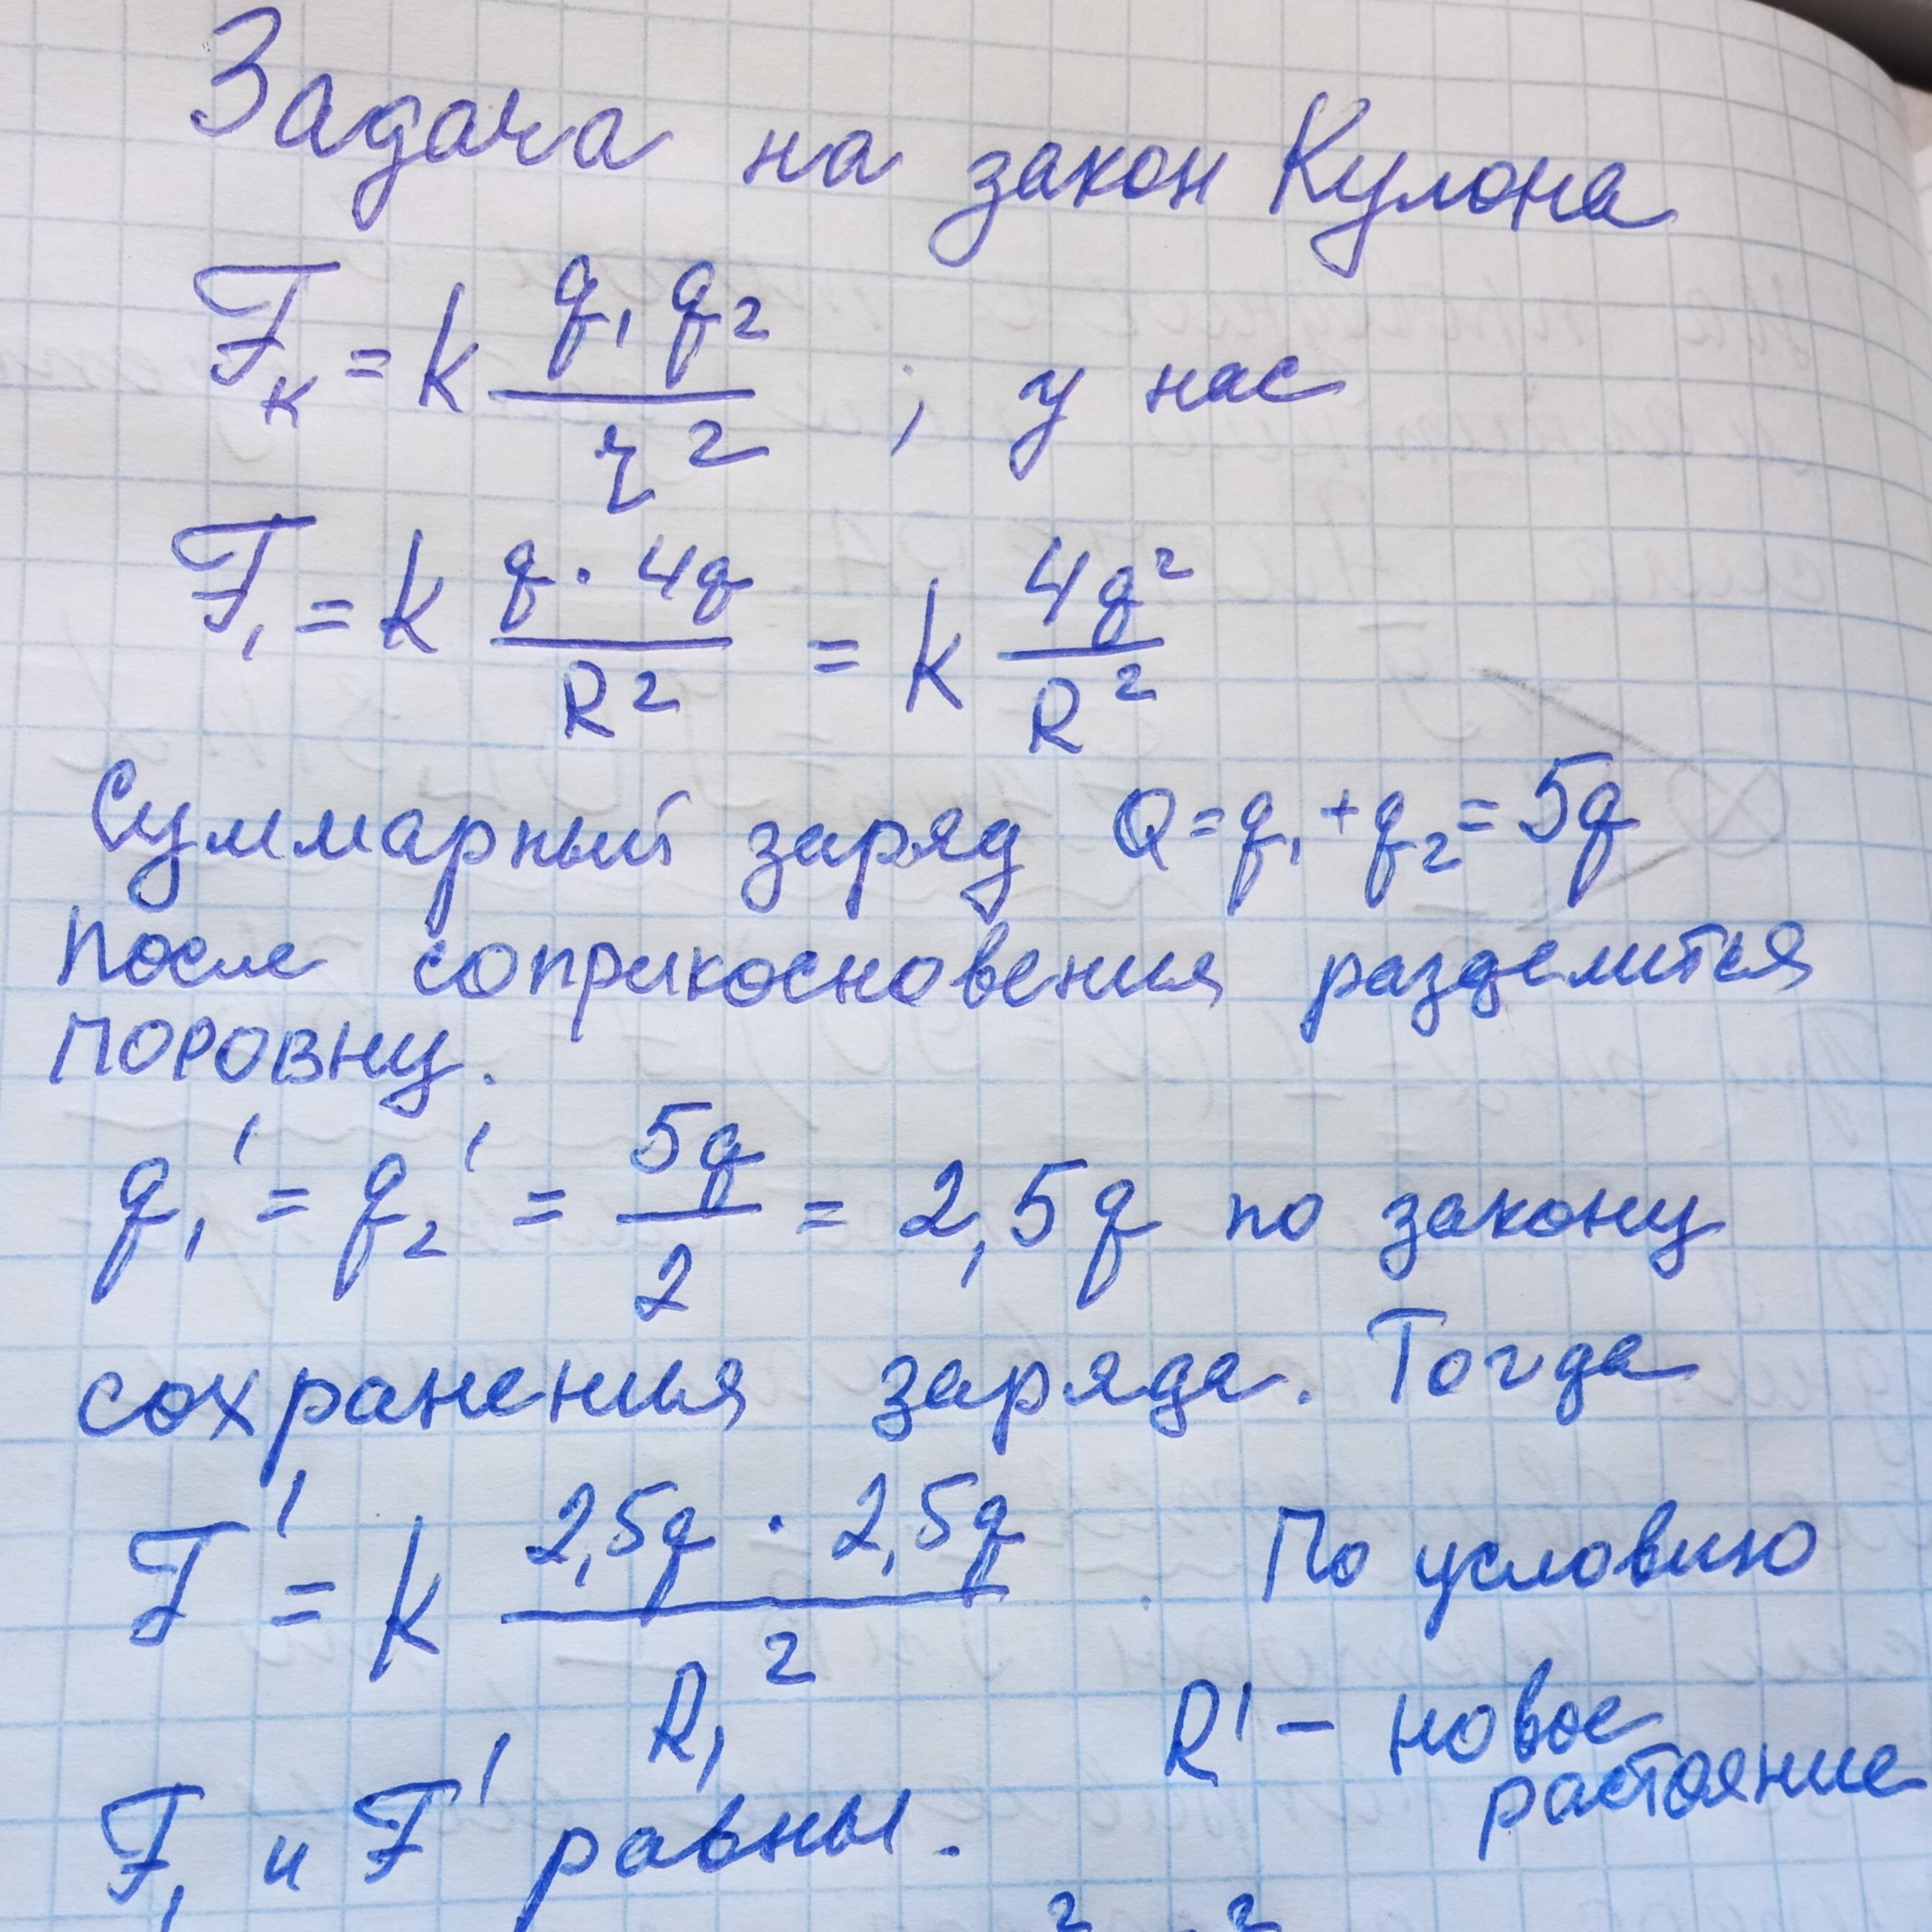 Задача на закон Кулона
Fк = k q₁ q₂ / r² ; у нас
F₁ = k q · 4q / R² = k 4q² / R²
Суммарный заряд Q = q₁ + q₂ = 5q
После соприкосновения разделится
поровну.
q₁' = q₂' = 5q / 2 = 2,5q по закону
сохранения заряда. Тогда
F' = k 2,5q · 2,5q / R₁² . По условию
R' – новое
растояние
F₁ и F' равны.